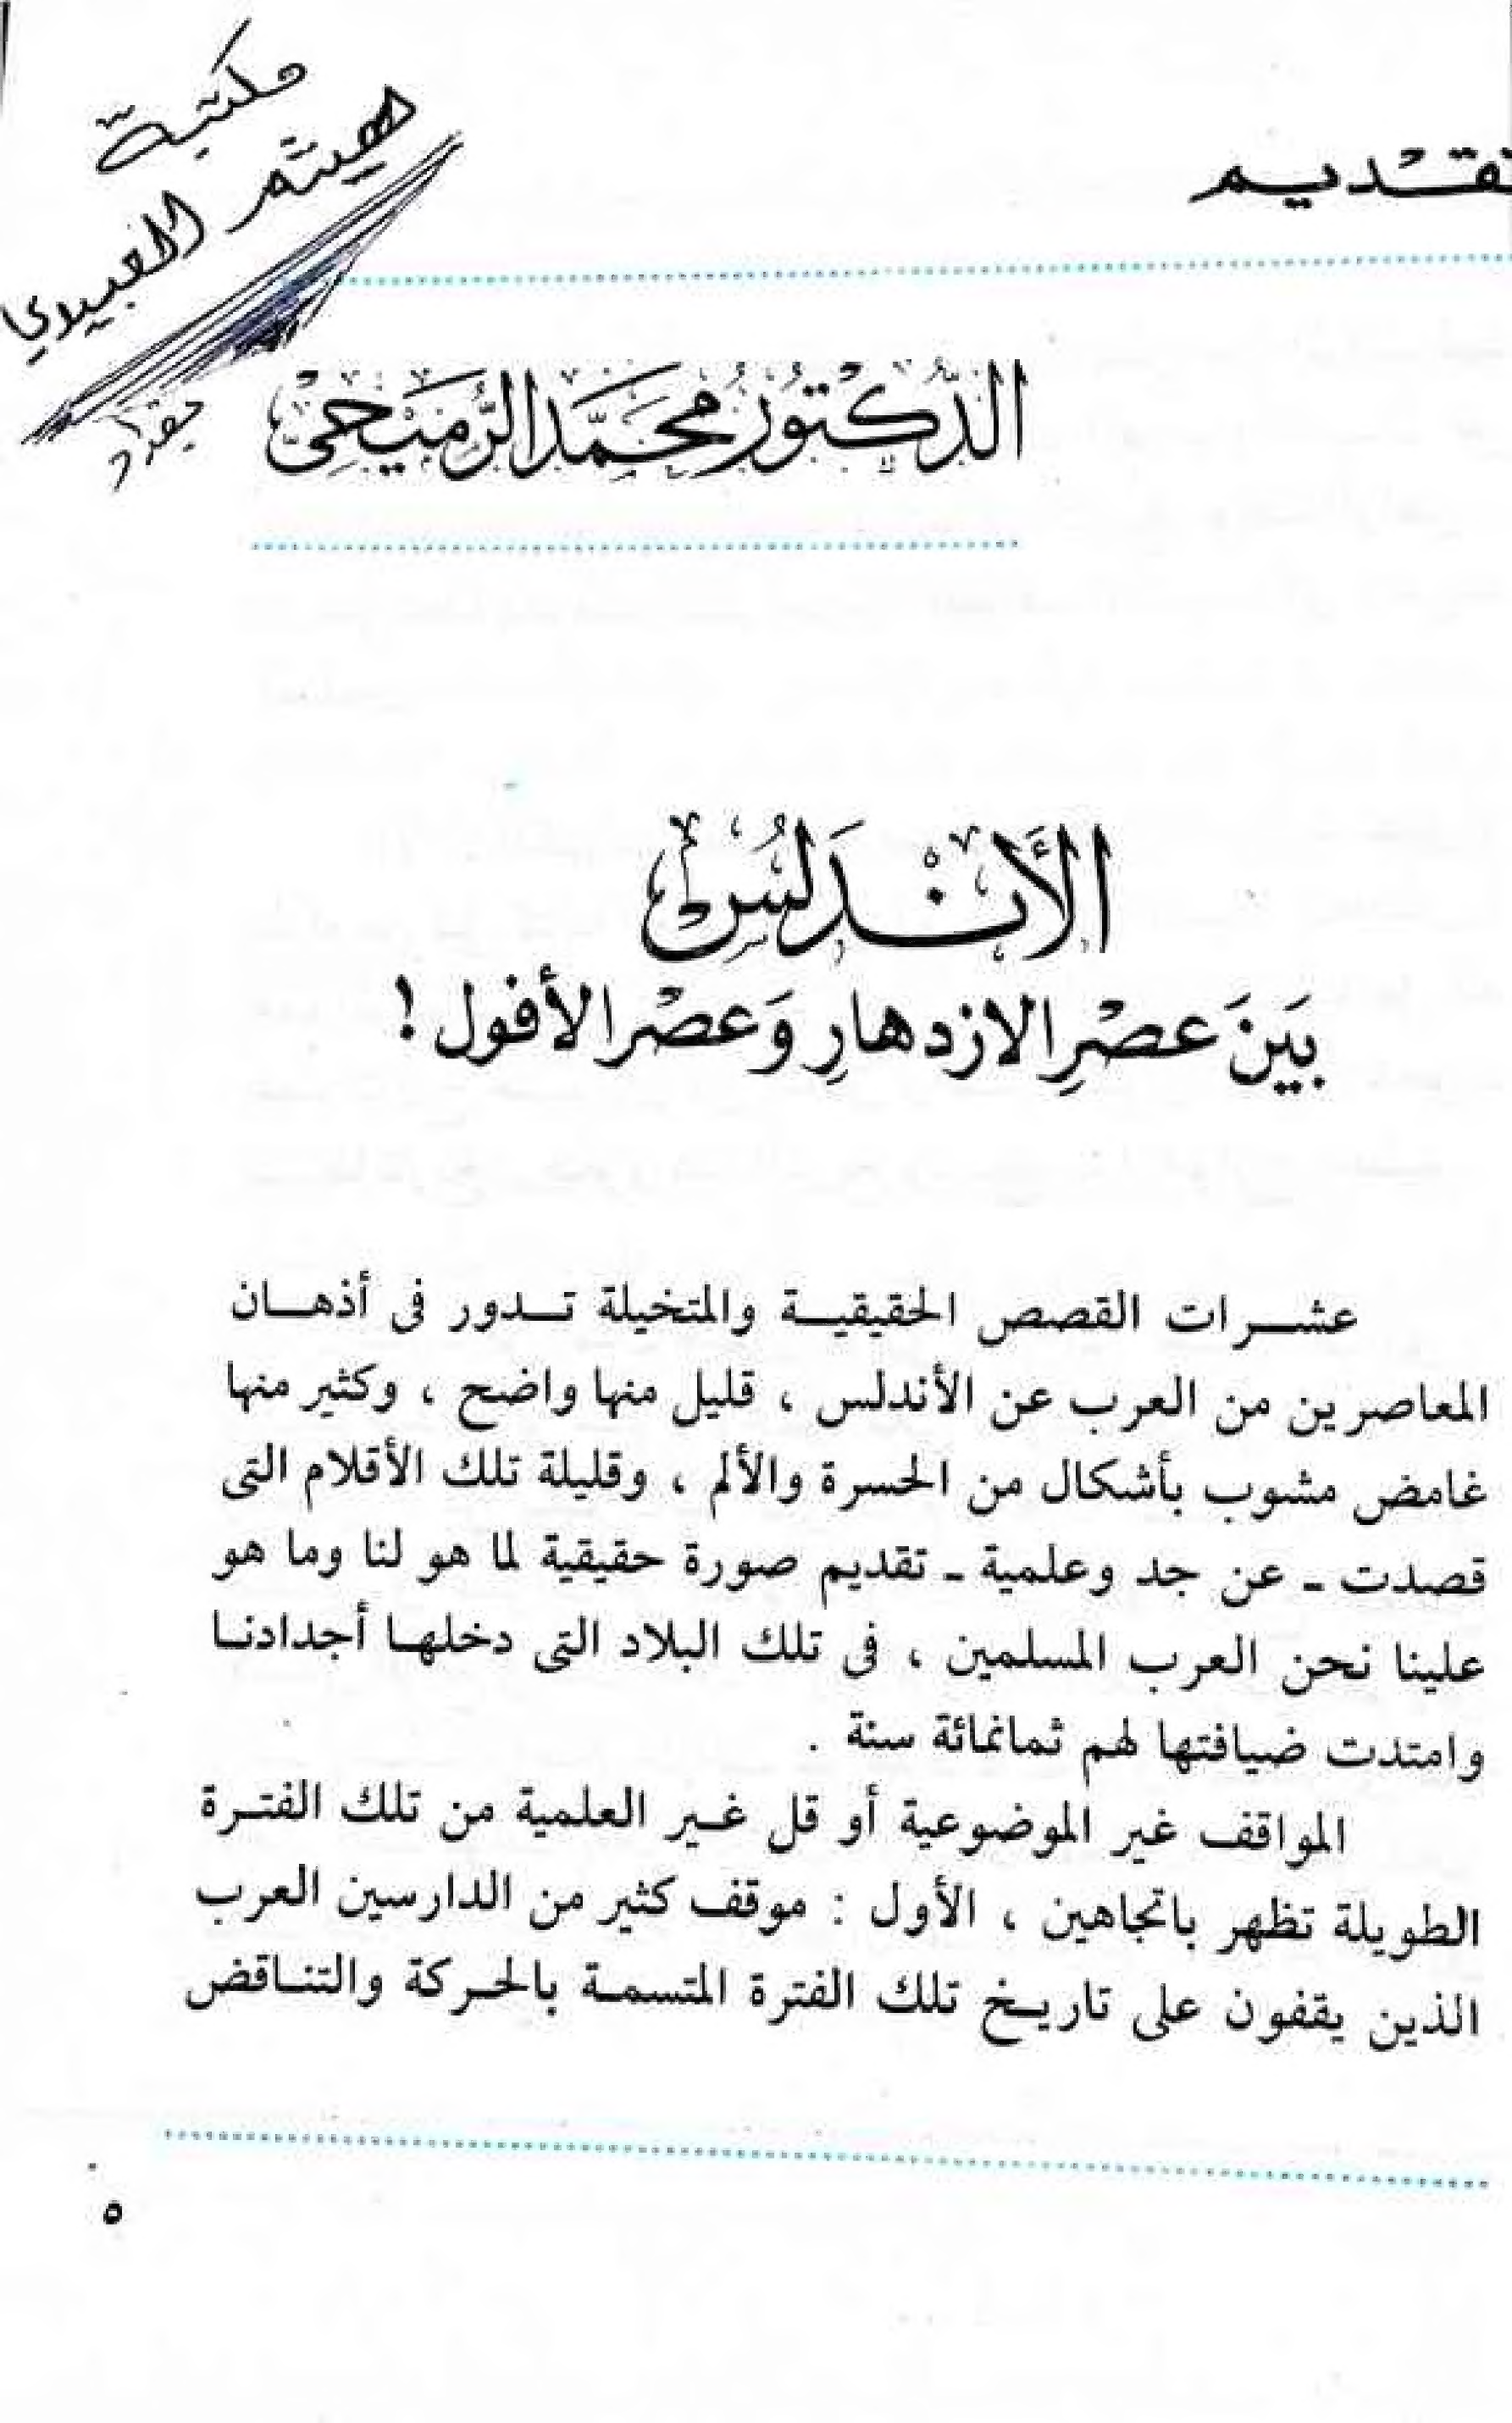 مكتبة
هيثم العبيدي
بغداد
تقديم
الدكتور محمد الرميحى
الأندلس
بين عصر الازدهار وعصر الأفول !
عشرات القصص الحقيقية والمتخيلة تدور فى أذهان
المعاصرين من العرب عن الأندلس ، قليل منها واضح ، وكثير منها
غامض مشوب بأشكال من الحسرة والألم ، وقليلة تلك الأقلام التى
قصدت ـ عن جد وعلمية ـ تقديم صورة حقيقية لما هو لنا وما هو
علينا نحن العرب المسلمين ، فى تلك البلاد التى دخلها أجدادنا
وامتدت ضيافتها لهم ثمانمائة سنة .
المواقف غير الموضوعية أو قل غير العلمية من تلك الفترة
الطويلة تظهر باتجاهين ، الأول : موقف كثير من الدارسين العرب
الذين يقفون على تاريخ تلك الفترة المتسمة بالحركة والتناقض
٥